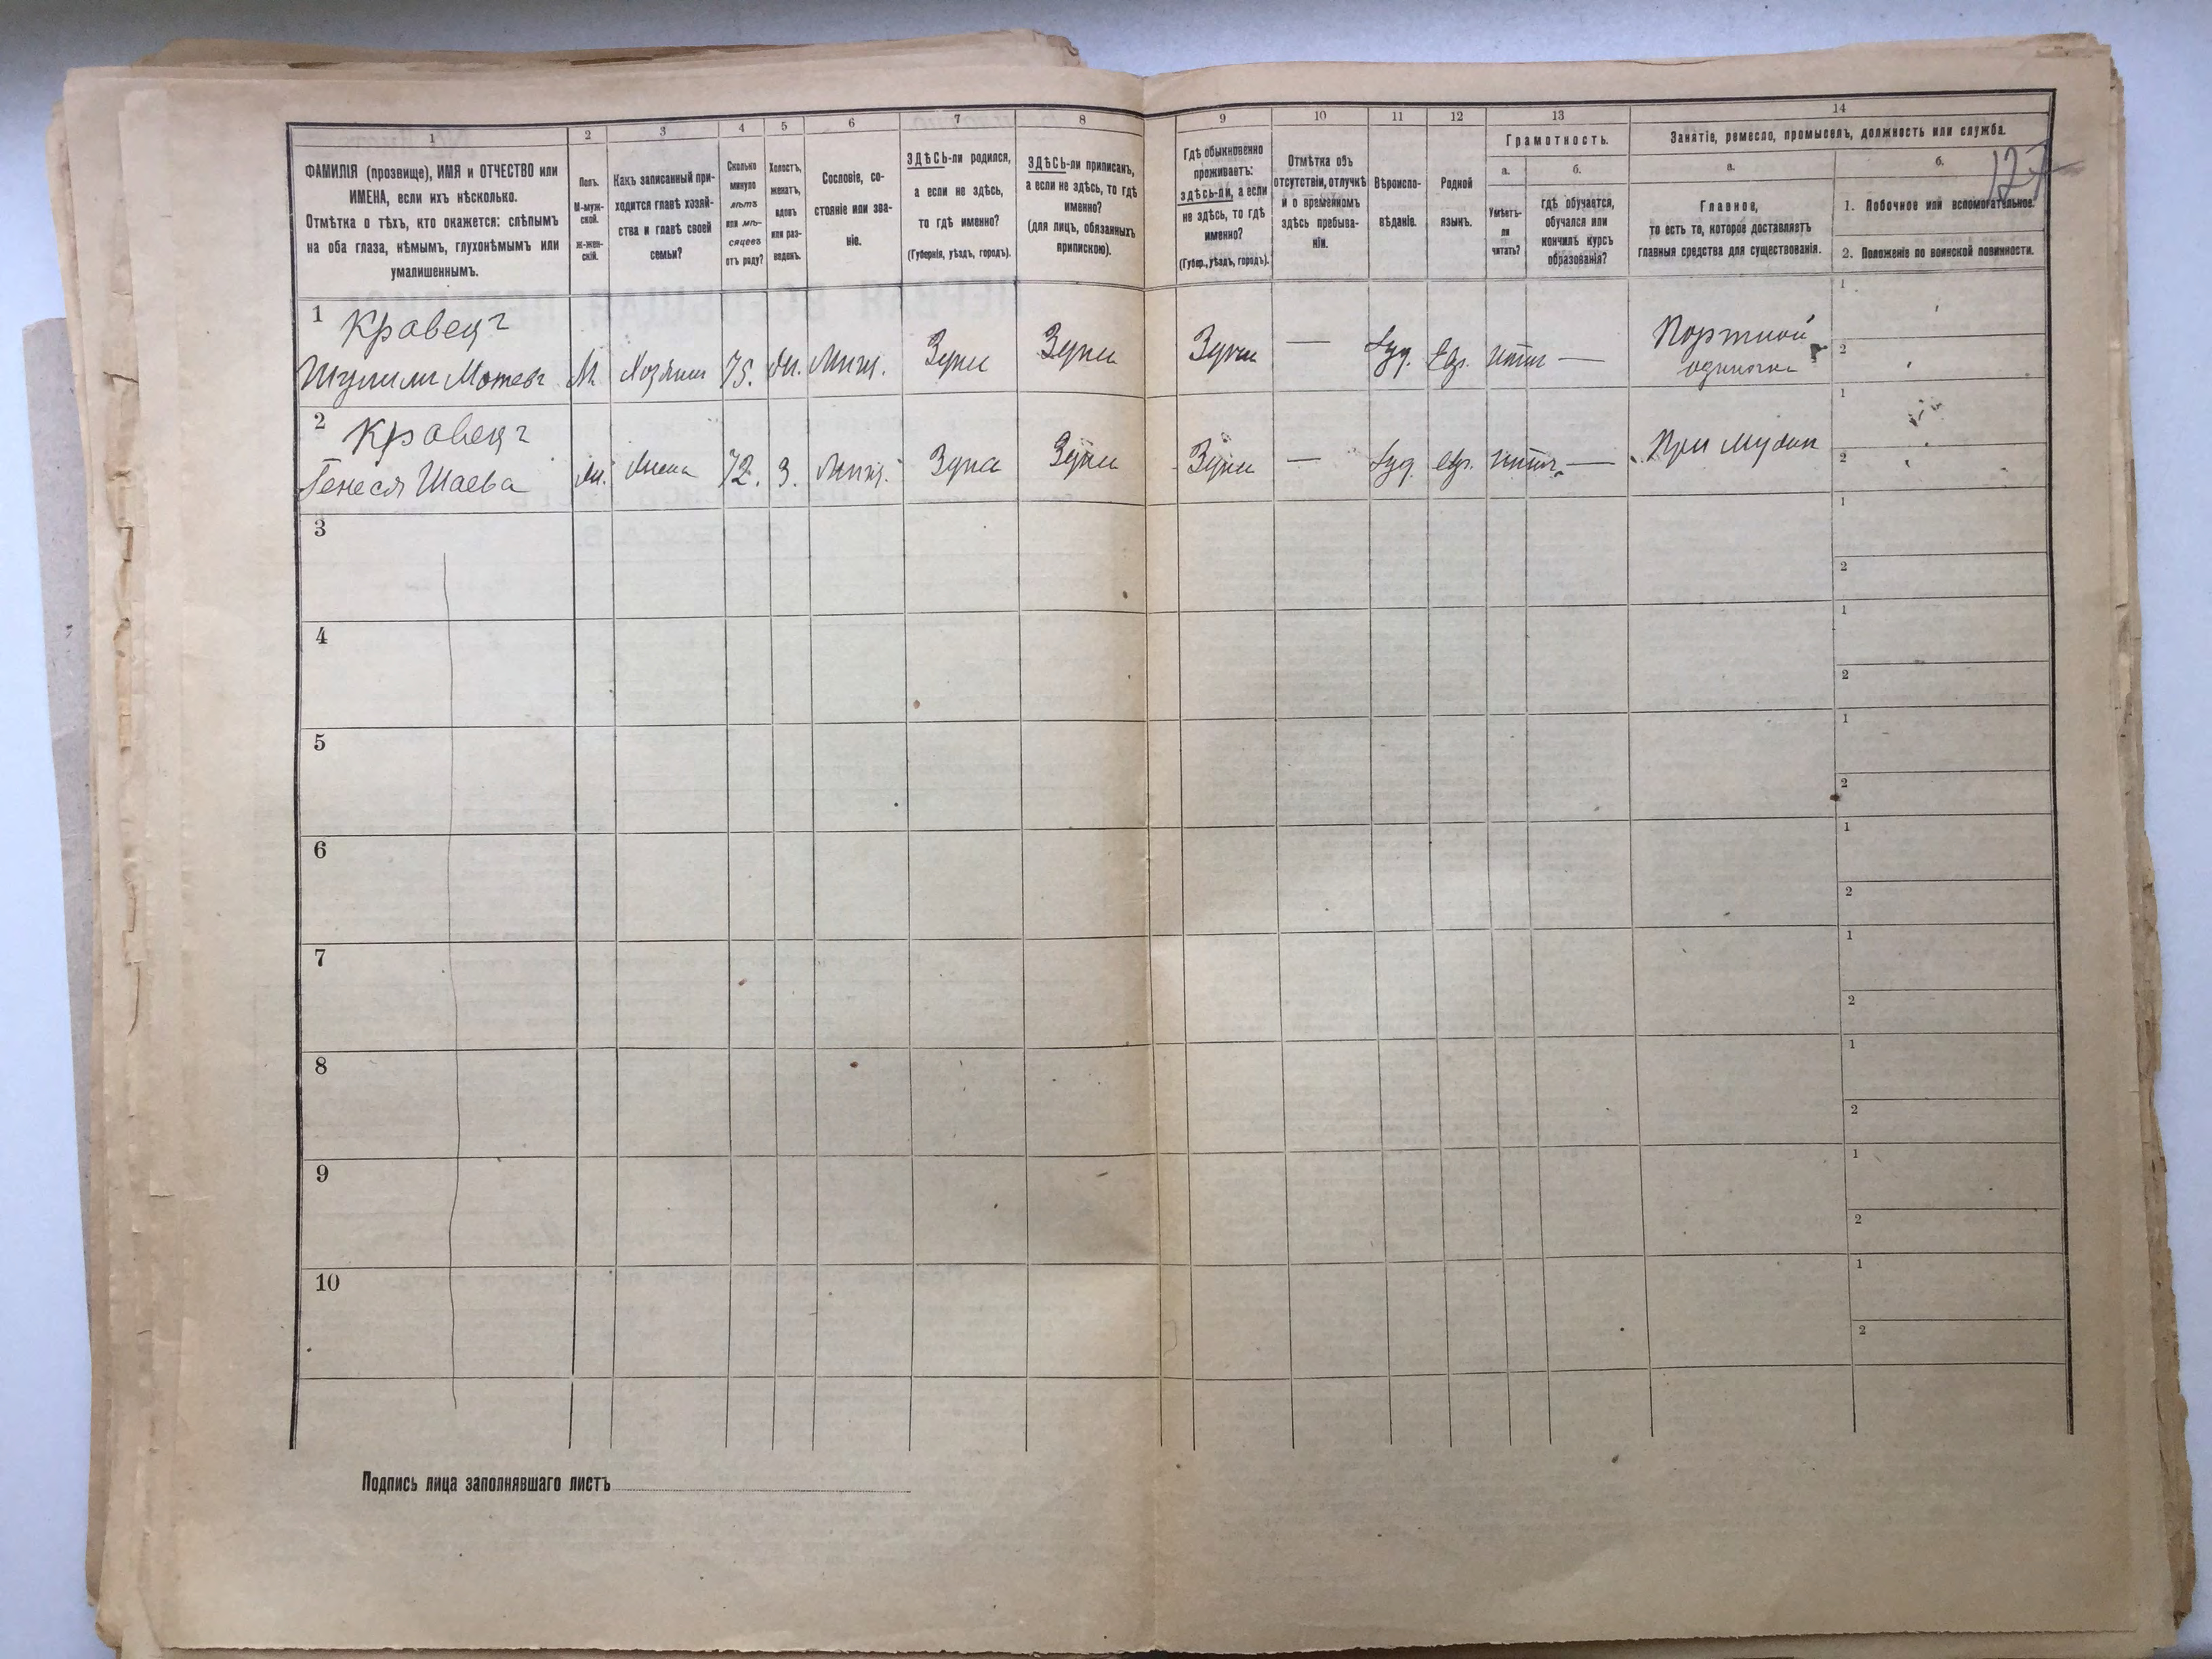 1
2
3
4
5
6
7
8
9
10
11
12
13
14
ФАМИЛІЯ (прозвище), ИМЯ и ОТЧЕСТВО или
ИМЕНА, если ихъ нѣсколько.
Отмѣтка о тѣхъ, кто окажется: слѣпымъ
на оба глаза, нѣмымъ, глухонѣмымъ или
умалишеннымъ.
Полъ.
М-муж-
ской.
Ж-жен-
скій.
Какъ записанный при-
ходится главѣ хозяй-
ства и главѣ своей
семьи?
Сколько
минуло
лѣтъ
или мѣ-
сяцевъ
отъ роду?
Холостъ,
женатъ,
вдовъ
или раз-
веденъ.
Сословіе, со-
стояніе или зва-
ніе.
ЗДѢСЬ-ли родился,
а если не здѣсь,
то гдѣ именно?
(Губернія, уѣздъ, городъ).
ЗДѢСЬ-ли приписанъ,
а если не здѣсь, то гдѣ
именно?
(для лицъ, обязанныхъ
припискою).
Гдѣ обыкновенно
проживаетъ:
здѣсь-ли, а если
не здѣсь, то гдѣ
именно?
(Губер., уѣздъ, городъ).
Отмѣтка объ
отсутствіи, отлучкѣ
и о временномъ
здѣсь пребыва-
ніи.
Вѣроиспо-
вѣданіе.
Родной
языкъ.
Грамотность.
а.
Умѣетъ-
ли
читать?
б.
гдѣ обучается,
обучался или
кончилъ курсъ
образованія?
Занятіе, ремесло, промыселъ, должность или служба.
а.
Главное,
то есть то, которое доставляетъ
главныя средства для существованія.
б.
127
1. Побочное или вспомогательное.
2. Положеніе по воинской повинности.
1 Кравецъ
М. Хозяинъ 75. Жи. — Евр. Портной
1
2
2 Кравецъ
Генеся Шаева Жи. Жена 72. З. — евр. — При мужѣ
1
2
3
1
2
4
1
2
5
1
2
6
1
2
7
1
2
8
1
2
9
1
2
10
1
2
Подпись лица заполнявшаго листъ